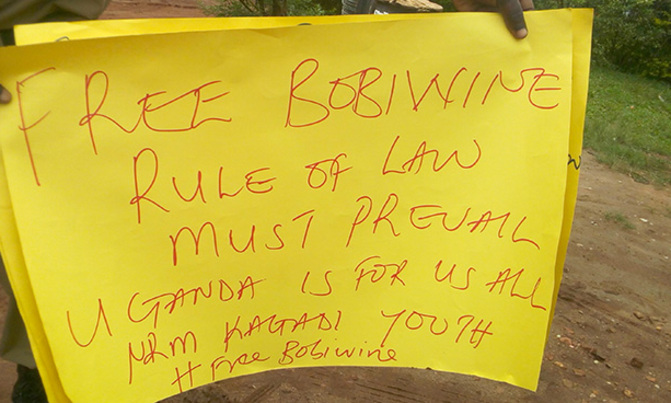 FREE BOBIWINE
RULE OF LAW
MUST PREVAIL
UGANDA IS FOR US ALL
NRM KAGADI YOUTH
# Free Bobiwine